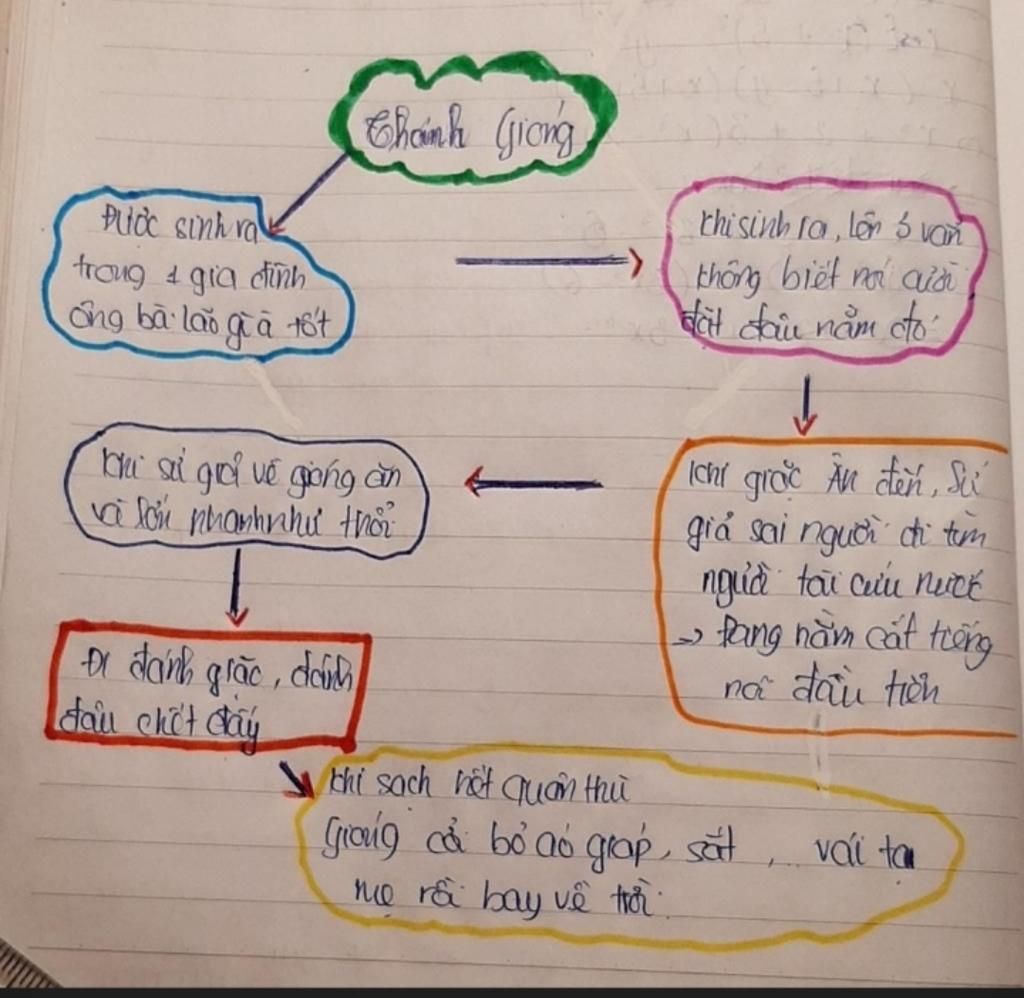 Thánh Gióng
Được sinh ra
trong 1 gia đình
ông bà lão già tốt
khi sinh ra, lên 3 vẫn
không biết nói cười
đặt đâu nằm đó
Khi giặc Ân đến, Sứ
giả sai người đi tìm
người tài cứu nước
→ Đang nằm cất tiếng
nói đầu tiên
Khi sứ giả về gióng ăn
và lớn nhanh như thổi
Đi đánh giặc, đánh
đâu chết đấy
Khi sạch hết quân thù
Gióng cả bỏ áo giáp, sắt, .. vái tạ
mẹ rồi bay về trời.